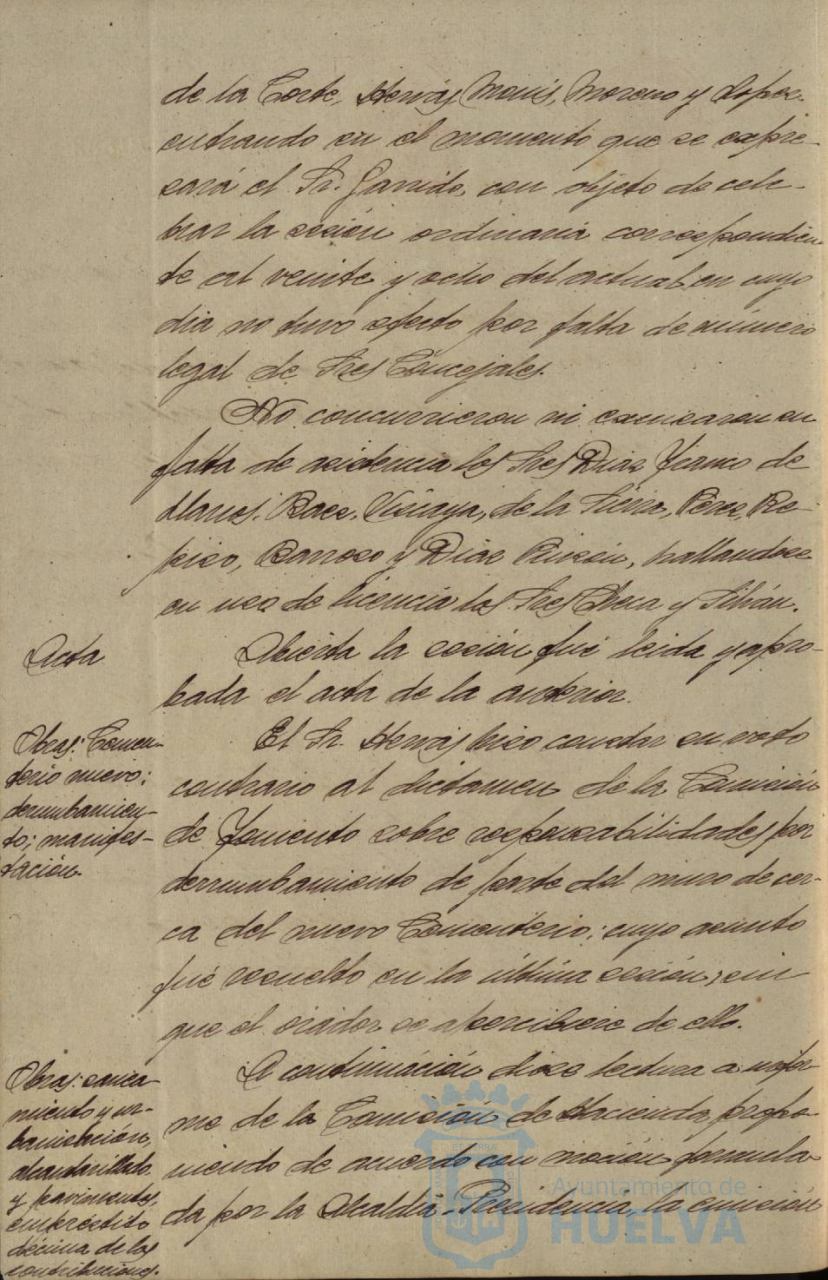 de la Corte, Hervás, Monís, Moreno y López.
entrando en el momento que se expre-
sará el Sr. Garrido, con objeto de cele-
brar la sesión ordinaria correspondien-
te al veinte y ocho del actual, en cuyo
dia no tuvo efecto por falta de número
legal de Sres. Concejales.
No concurrieron ni excusaron su
falta de asistencia los Sres. Díaz Franco de
Llanos, Baez, Vizcaya, de la Sierra, Pérez, Re-
piso, Barroso y Díaz Rincón, hallandose
en uso de licencia los Sres. Checa y Silván.
Acta
Abierta la sesión fué leida y apro-
bada el acta de la anterior.
Obras: Cemen-
terio nuevo:
derrumbamien-
to; manifes-
tación.
El Sr. Hervás hizo constar su voto
contrario al dictamen de la Comisión
de Fomento sobre responsabilidades por
derrumbamiento de parte del muro de cer-
ca del nuevo Cementerio; cuyo asunto
fué resuelto en la última sesión, sin
que el orador se apercibiese de ello.
Obras: sanea-
miento y ur-
banización,
alcantarillado
y pavimentos,
empréstito
décima de las
contribuciones.
A continuación dióse lectura a infor-
me de la Comisión de Hacienda, propo-
niendo de acuerdo con moción formula-
da por la Alcaldía-Presidencia, la emisión
Ayuntamiento de
HUELVA